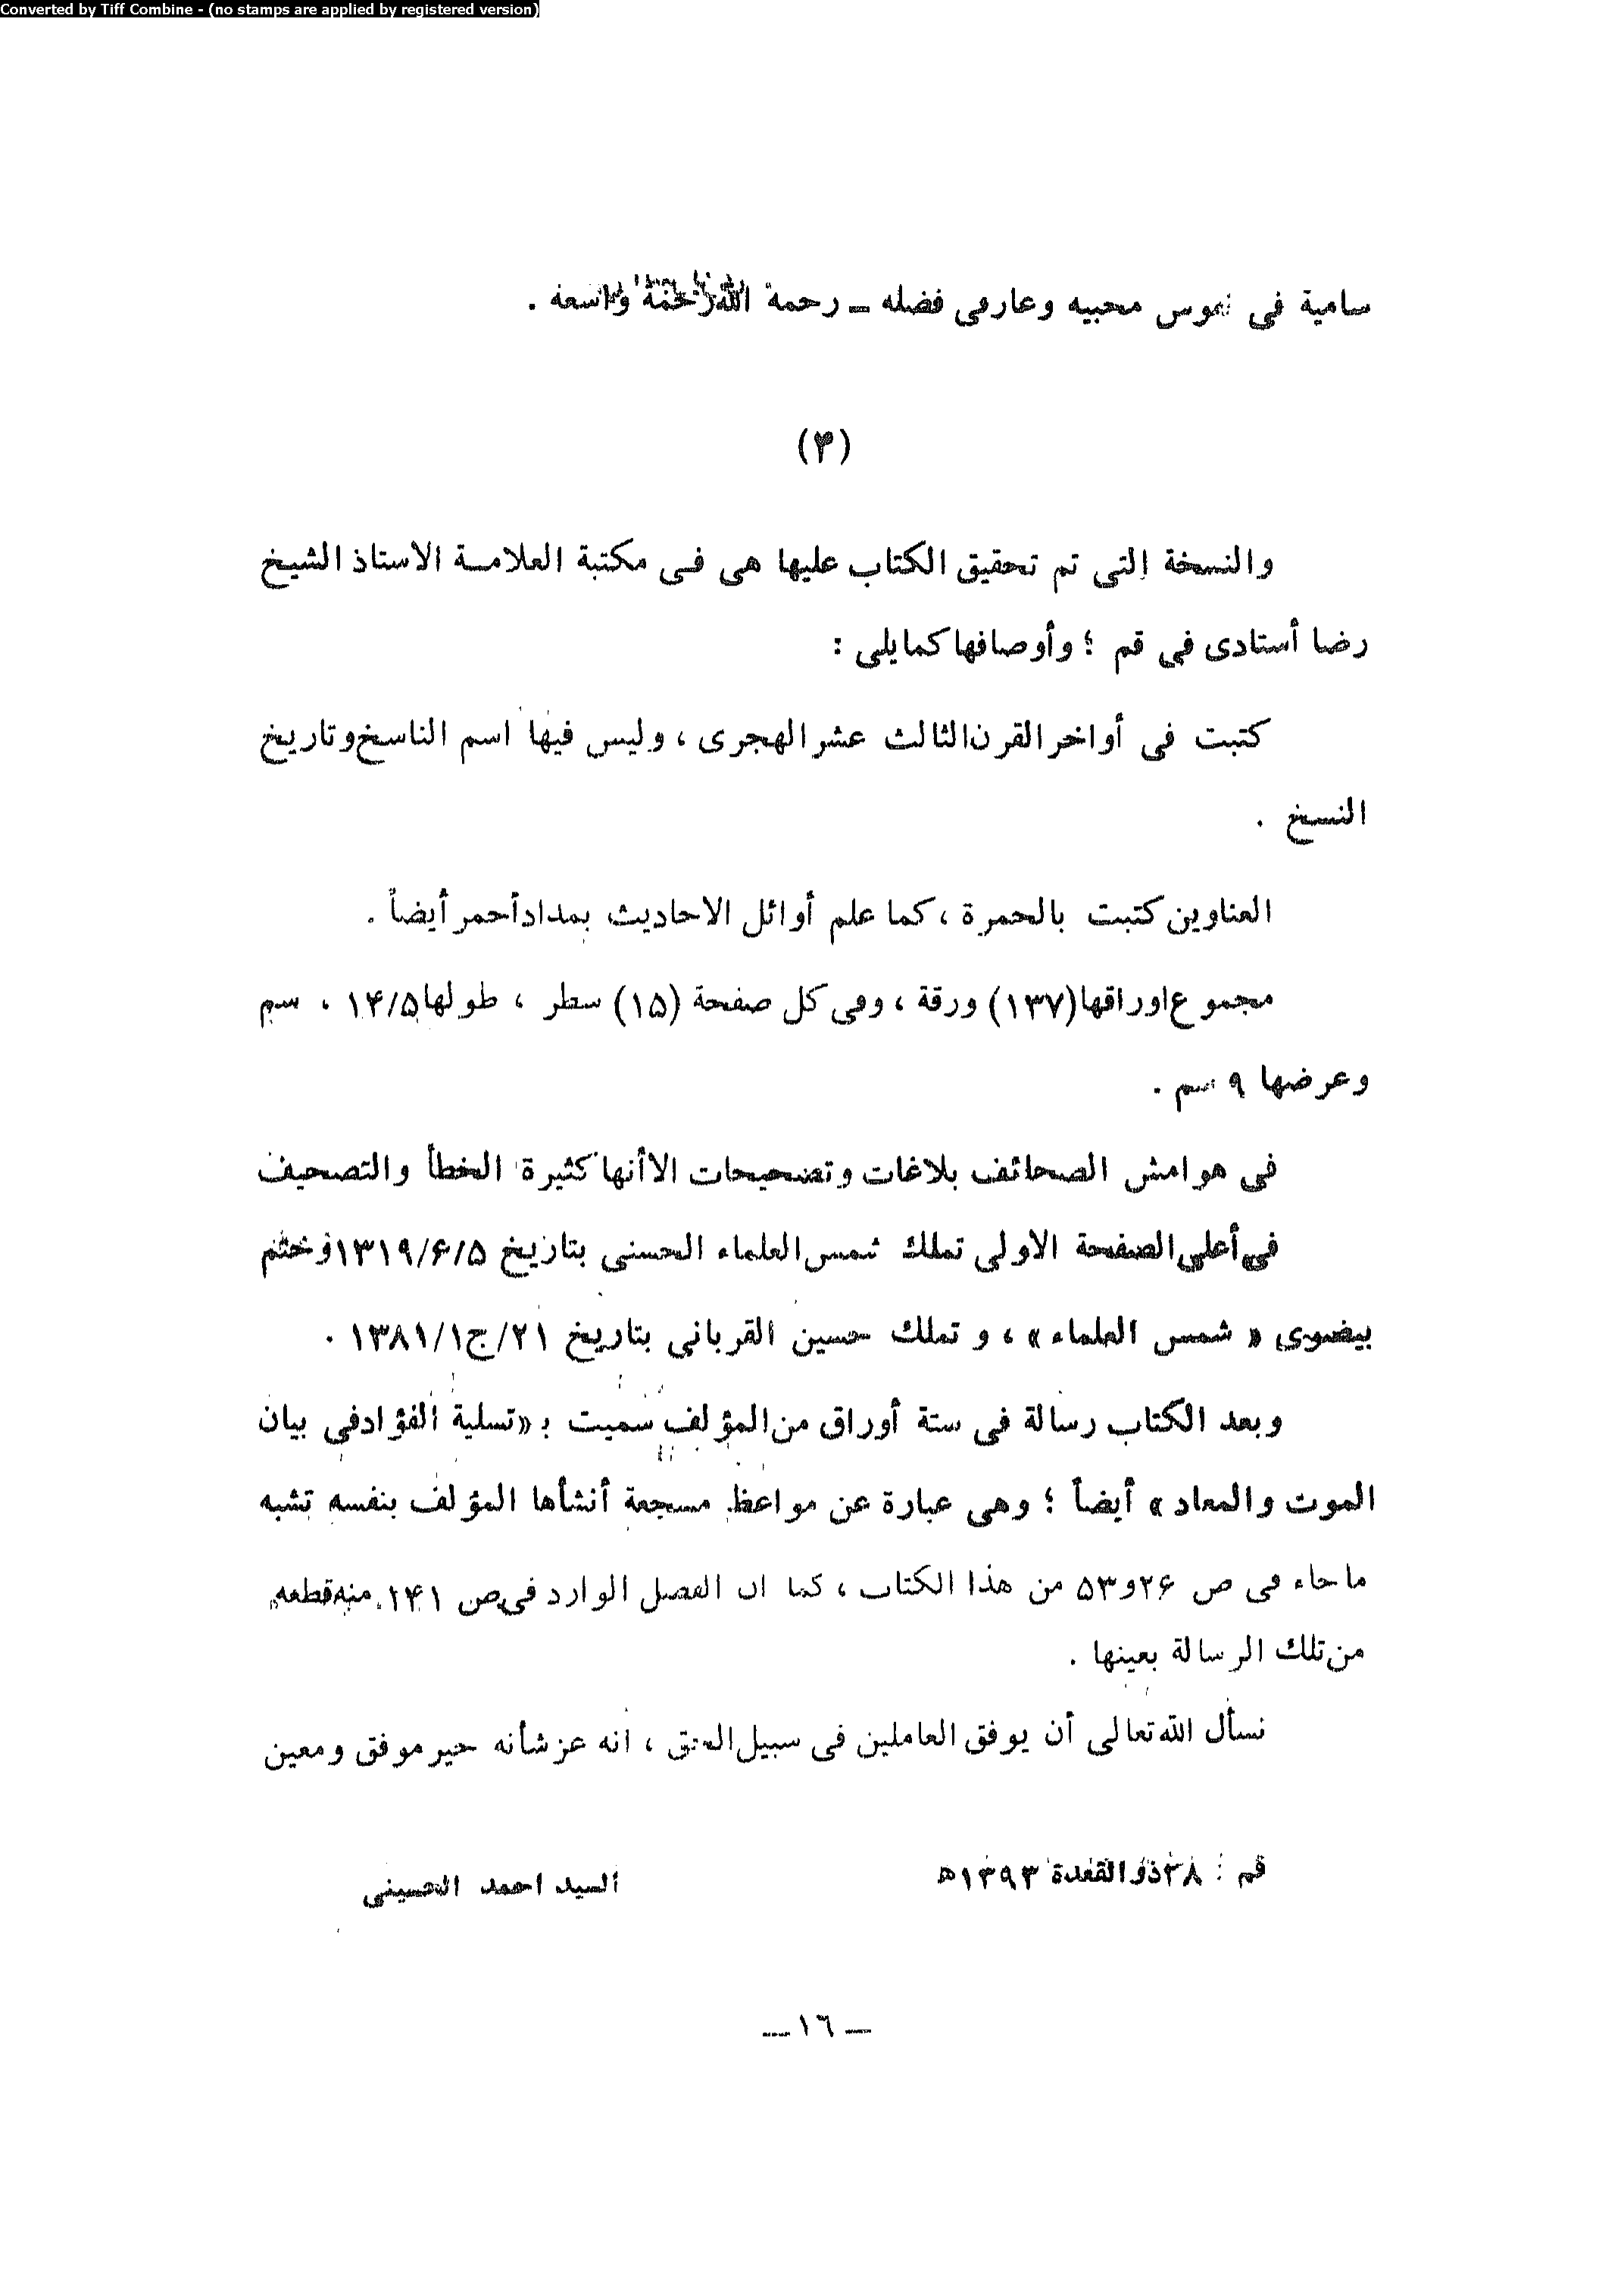 Converted by Tiff Combine - (no stamps are applied by registered version)
سامية في نفوس محبيه وعارفي فضله ــ رحمة الله رحمة واسعة .
(۳)
والنسخة التي تم تحقيق الكتاب عليها هي فـي مكتبة العلامــة الاستاذ الشيخ
رضا أستادى في قم ؛ وأوصافها كمايلي :
كتبت في أواخر القرن الثالث عشر الهجرى ، وليس فيها اسم الناسخ وتاريخ
النسخ .
العناوين كتبت بالحمرة ، كما علم أوائل الاحاديث بمداد أحمر أيضاً .
مجموع اوراقها (۱۳۷) ورقة ، وفي كل صفحة (۱۵) سطر ، طولها ۱۴/۵ . سم
وعرضها ۹ سم .
في هوامش الصحائف بلاغات وتصحيحات الاأنها كثيرة الخطأ والتصحيف
في أعلى الصفحة الاولى تملك شمس العلماء الحسنى بتاريخ ۱۳۱۹/۶/۵ وختم
بيضوى « شمس العلماء » ، و تملك حسين القربانى بتاريخ ۲۱/ج۱۳۸۱/۱ .
وبعد الكتاب رسالة في ستة أوراق من المؤلف سميت بـ «تسلية الفؤاد في بيان
الموت والمعاد » أيضاً ؛ وهي عبارة عن مواعظ مسجعة أنشأها المؤلف بنفسه تشبه
ماجاء في ص ۲۶و۵۳ من هذا الكتاب ، كما ان الفصل الوارد في ص ۱۴۱ منه قطعة
من تلك الرسالة بعينها .
نسأل الله تعالى أن يوفق العاملين في سبيل الحق ، انه عز شأنه خير موفق ومعين
قم : ذوالقعدة ۱۳۹۳ه
السيد احمد الحسيني
ــ ١٦ ــ